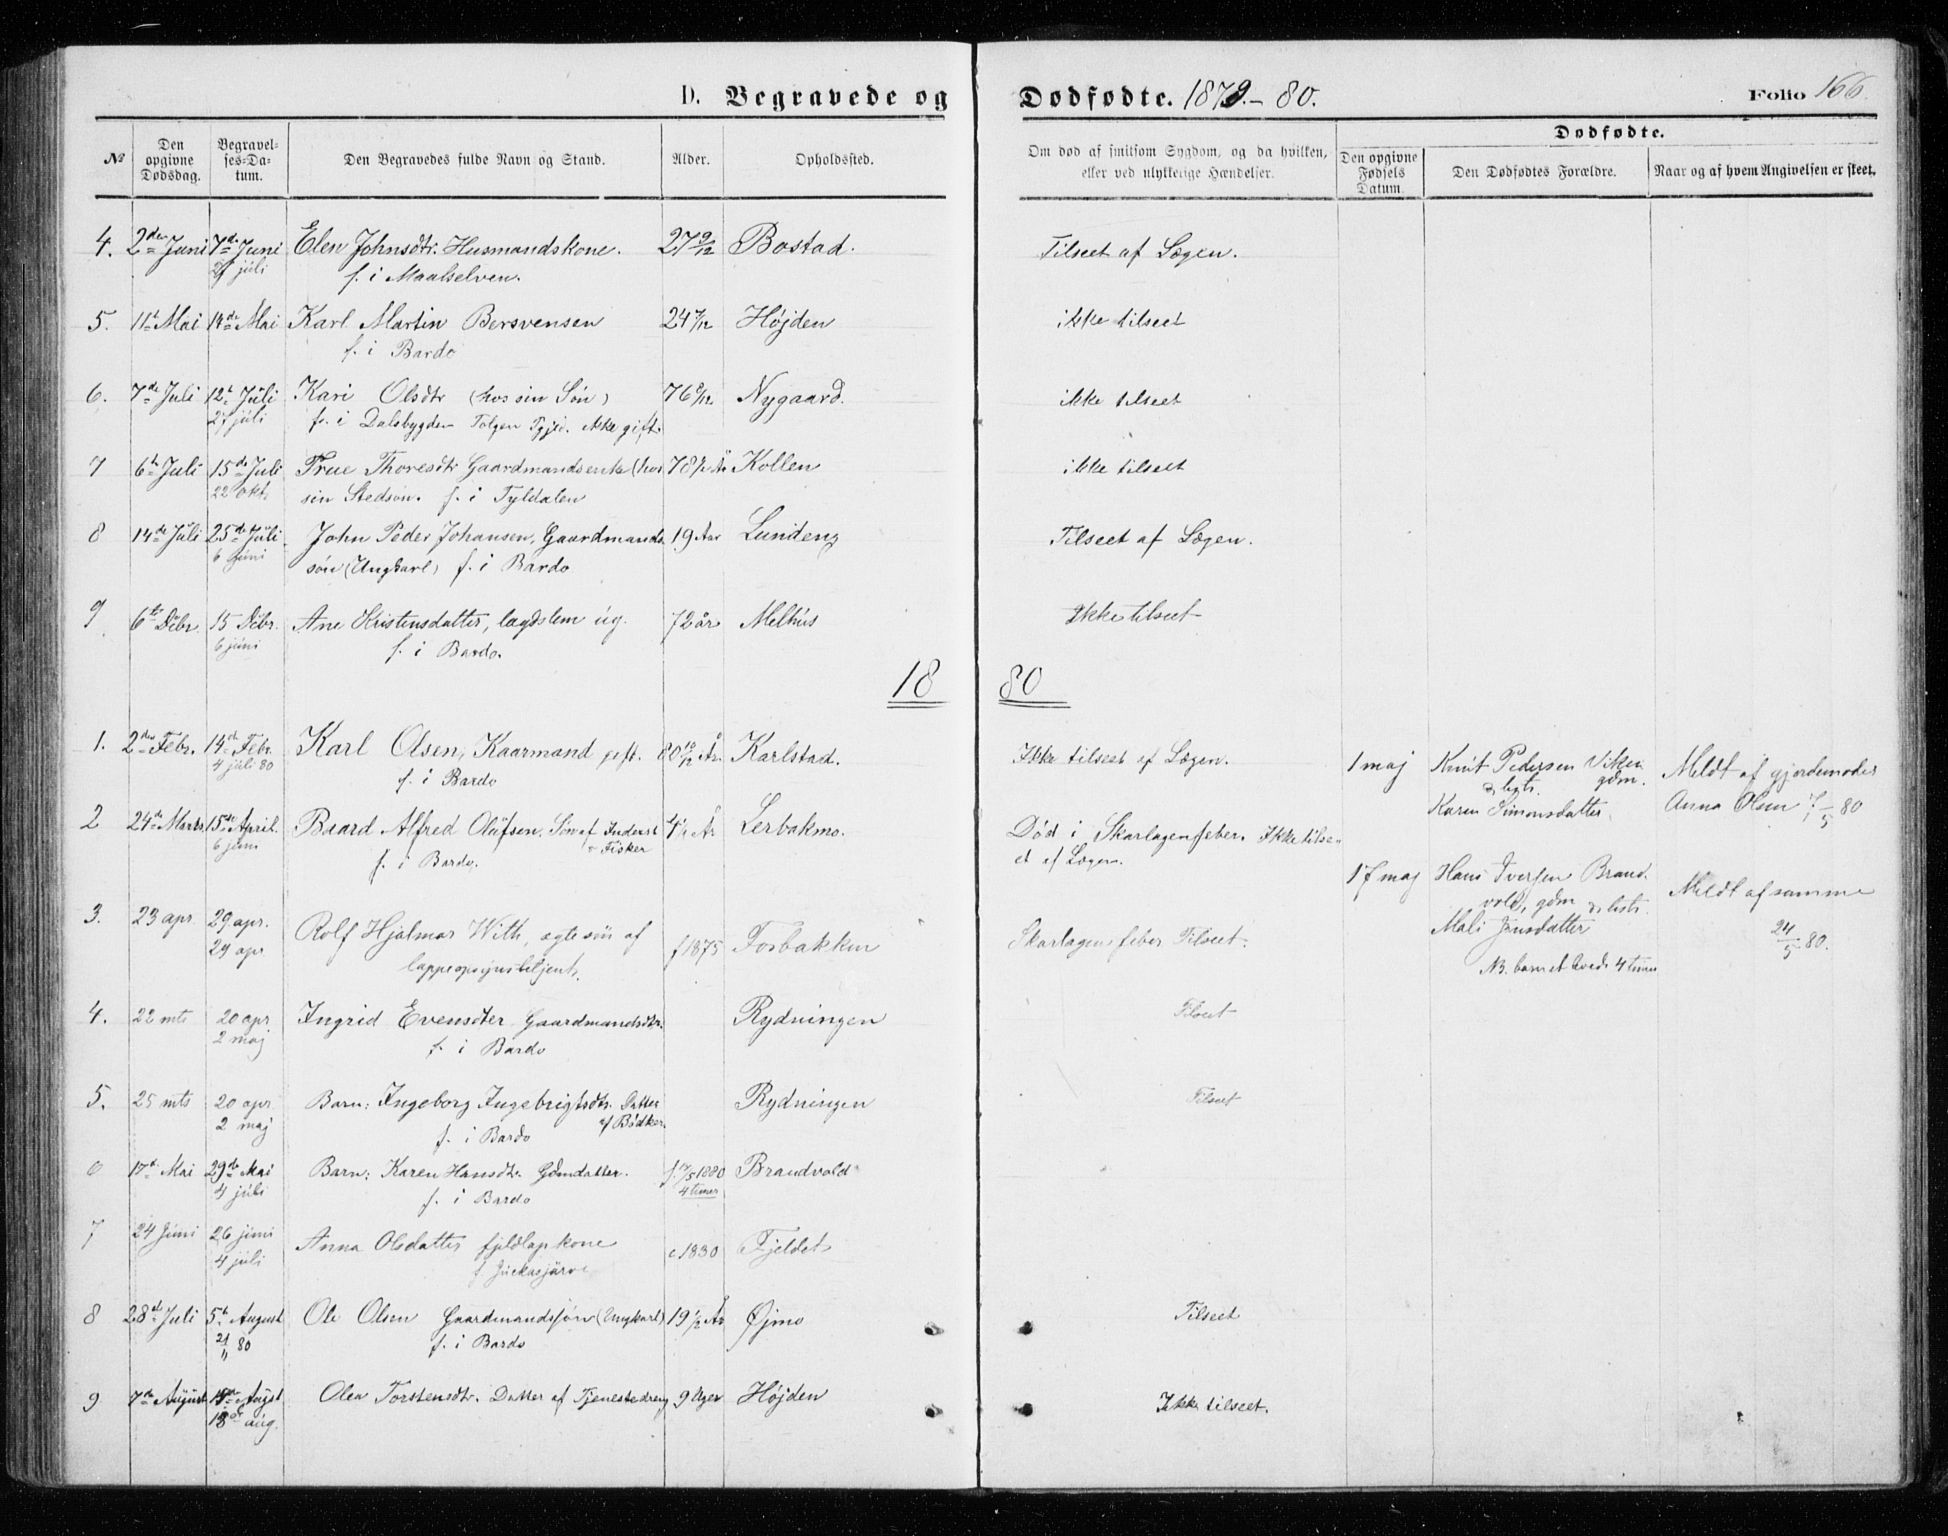 D. Begravede og Dødfødte. 1879.-80. Folio 166.
Dødfødte.
№ Den opgivne Dødsdag. Begravelses-Datum. Den Begravedes fulde Navn og Stand. Alder. Opholdssted. Om død af smitsom Sygdom, og da hvilken, eller ved ulykkelige Hændelser. Den opgivne Fødsels Datum. Den Dødfødtes Forældre. Naar og af hvem Angivelsen er skeet.
4. 2den Juni 7de Juni Elen Johnsdtr. Husmandskone. 27 9/12 Bostad. Tilseet af Lægen.
27 juli f. i Maalselven.
5. 11te Mai 14de Mai Karl Martin Bersvensen 24 7/12 Højden ikke tilseet
f. i Bardo
6. 7de Juli 12te Juli Kari Olsdtr (hos sin Søn) 76 8/12 Nygaard. ikke tilseet
27 juli f. i Dalsbygden Tolgen Pgjd. ikke gift.
7 6te Juli 15de Juli True Thoresdtr Gaardmandsenke (hos 78 1/2 År Kollen ikke tilseet
22 okt. sin Stedsøn. f. i Tyldalen
8 14de Juli 25de Juli John Peder Johansen, Gaardmands 19 Aar Lundeng Tilseet af Lægen.
6 juni søn (Ungkarl) f. i Bardo
9 6te Dcbr. 15 Dcbr. Ane Kristensdatter, lægdslem ug. 72 år Melhus Ikke tilseet
6 juni f. i Bardo.
18 80
1. 2den Febr. 14de Febr. Karl Olsen, Kaarmand gift. 80 10/12 År. Karlstad. Ikke tilseet af Lægen. 1 maj Knut Pedersen Viken gdm. Meldt af gjordemoder
4 juli 80 f. i Bardo & hst. Karen Simonsdatter. Anna Olsen 7/5 80
2 24de Marts 15de April. Baard Alfred Olufsen. Søn af Inderst 4 1/2 År Lerbakmo. Død i Skarlagensfeber. Ikke tilse-
6 juni f. i Bardo. - Fisker et af Lægen.
17 maj Hans Iversen Brand- Meldt af samme
vold, gdm & hst.
3. 23 apr 29 apr. Rolf Hjalmar With, ægte søn af f 1875 Fosbakken Skarlagensfeber Tilseet. Mali Jonsdatter 24/5 80.
29 apr. lappeopsynsbetjent. NB. barnet leved 4 timer
4. 22 mts 20 apr Ingrid Evensdter Gaardmandsdtr. Rydningen Tilseet
2 maj f. i Bardo
5. 25 mts 20 apr. Barn: Ingeborg Ingebrigtsdtr. Datter Rydningen Tilseet
2 maj f. i Bardo af Bødker.
6 17de Mai 29de Mai Barn: Karen Hansdtr. Gdmdatter. f. 17/5 1880 Brandvold
4 juli f. i Bardo 4 timer
7 24 Juni 26 juni Anna Olsdatter fjeldlapkone c 1830 Fjeldet
4 juli f Juckasjärvi
8 28de Juli 5te August Ole Olsen Gaardmandssøn (Ungkarl) 19 1/2 År Øjmo Tilseet
21/11 80 f. i Bardo
9 7de August 15de August Olea Torstensdtr. Datter af Tjenestedreng 9 Uger Højden Ikke tilseet.
18de aug.